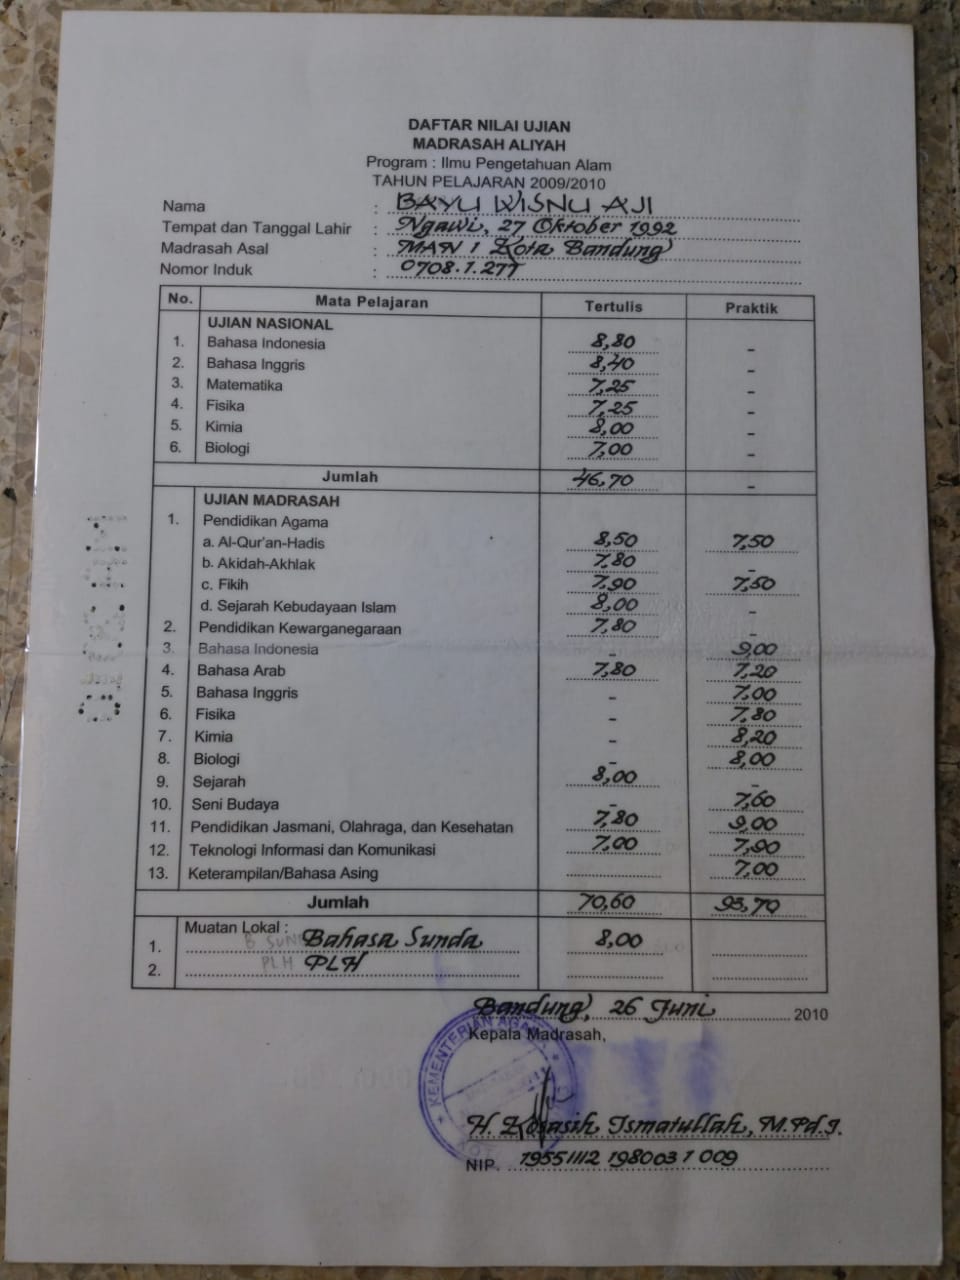 DAFTAR NILAI UJIAN
MADRASAH ALIYAH
Program : Ilmu Pengetahuan Alam
TAHUN PELAJARAN 2009/2010
Nama : BAYU WISNU AJI
Tempat dan Tanggal Lahir : Ngawi, 27 Oktober 1992
Madrasah Asal : MAN 1 Kota Bandung
Nomor Induk : 0708.1.277
No. Mata Pelajaran Tertulis Praktik
UJIAN NASIONAL
1. Bahasa Indonesia 8,80 -
2. Bahasa Inggris 8,40 -
3. Matematika 7,25 -
4. Fisika 7,25 -
5. Kimia 8,00 -
6. Biologi 7,00 -
Jumlah 46,70 -
UJIAN MADRASAH
1. Pendidikan Agama
a. Al-Qur'an-Hadis 8,50 7,50
b. Akidah-Akhlak 7,80 -
c. Fikih 7,90 7,50
d. Sejarah Kebudayaan Islam 8,00 -
2. Pendidikan Kewarganegaraan 7,80 -
3. Bahasa Indonesia - 9,00
4. Bahasa Arab 7,80 7,20
5. Bahasa Inggris - 7,00
6. Fisika - 7,80
7. Kimia - 8,20
8. Biologi - 8,00
9. Sejarah 8,00 -
10. Seni Budaya - 7,60
11. Pendidikan Jasmani, Olahraga, dan Kesehatan 7,80 9,00
12. Teknologi Informasi dan Komunikasi 7,00 7,90
13. Keterampilan/Bahasa Asing 7,00
Jumlah 70,60 93,70
Muatan Lokal :
1. B SUND Bahasa Sunda 8,00
2. PLH PLH
Bandung, 26 Juni 2010
Kepala Madrasah,
KEMENTERIAN AGAMA
H. Kosasih Ismatullah, M.Pd.I.
NIP. 19551112 198003 1 009